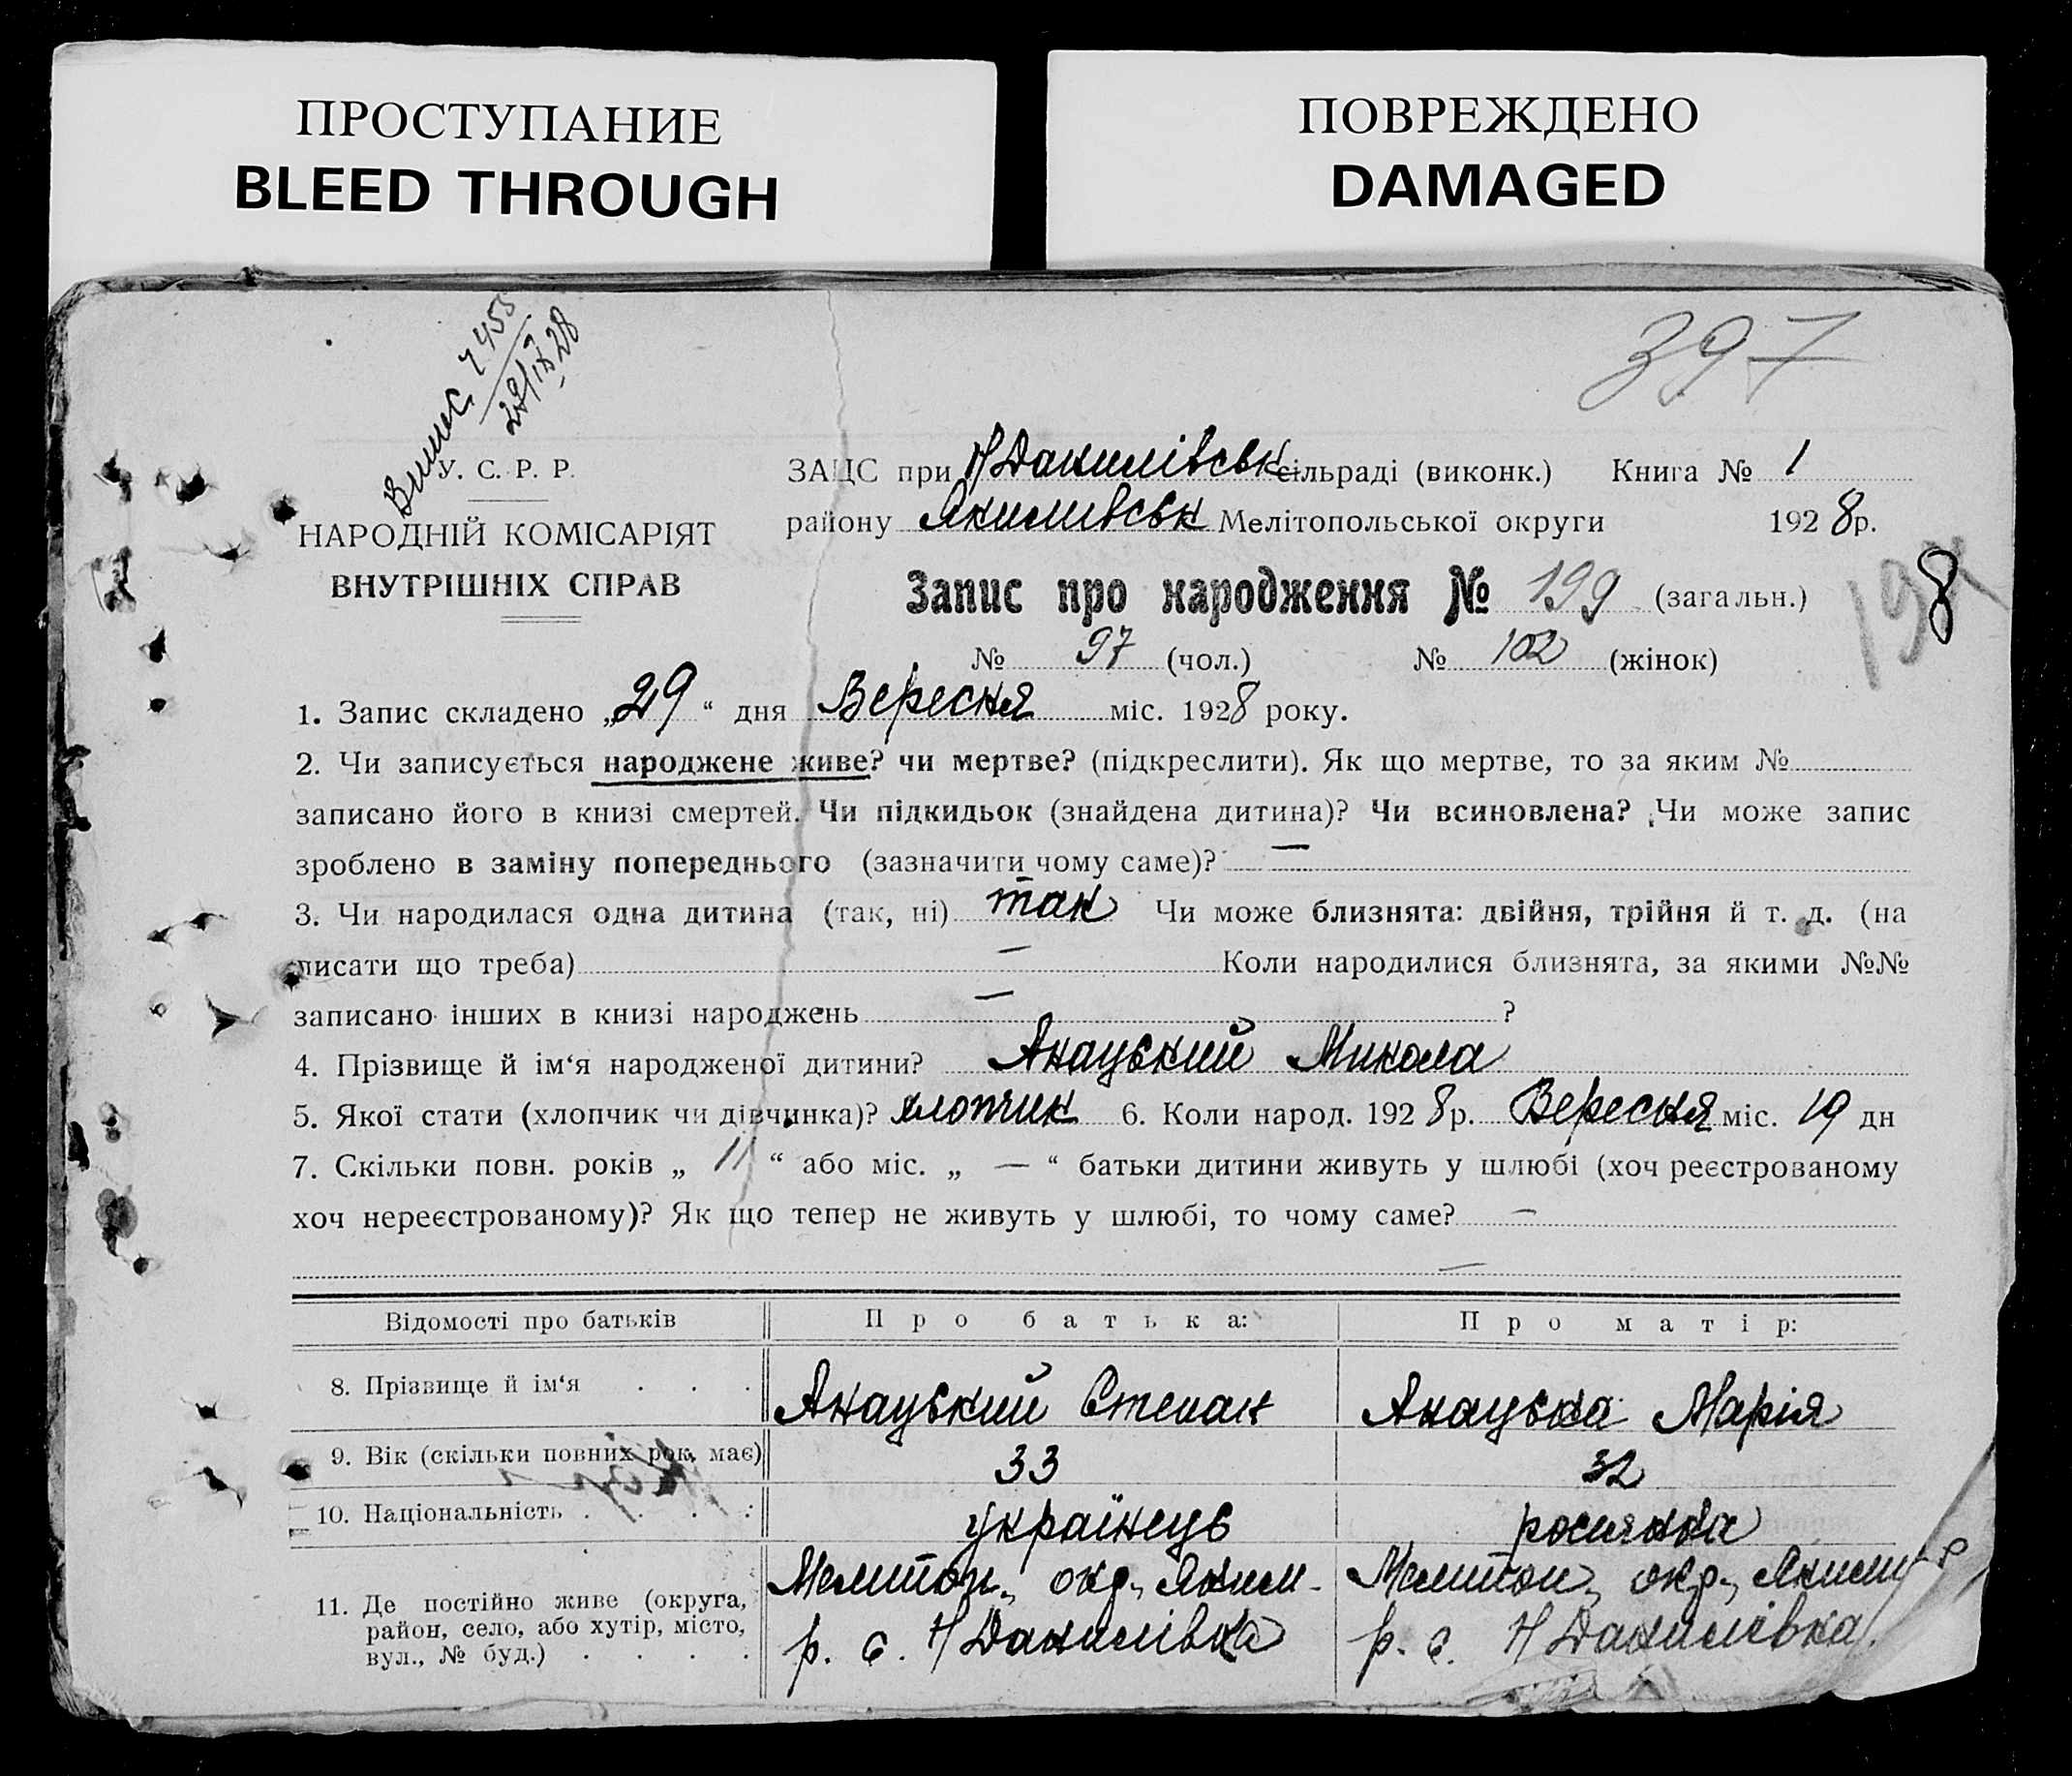 ПРОСТУПАНИЕ
BLEED THROUGH
ПОВРЕЖДЕНО
DAMAGED
397
Випис. 455
29/IX 28
У. С. Р. Р.
НАРОДНІЙ КОМІСАРІЯТ
ВНУТРІШНІХ СПРАВ
ЗАЦС при Н Данилівськ сільраді (виконк.) Книга № 1
району Якимівськ Мелітопольської округи 1928р.
Запис про народження № 199 (загальн.)
198
№ 97 (чол.) № 102 (жінок)
1. Запис складено „29“ дня Вересня міс. 1928 року.
2. Чи записується народжене живе? чи мертве? (підкреслити). Як що мертве, то за яким №
записано його в книзі смертей. Чи підкидьок (знайдена дитина)? Чи всиновлена? Чи може запис
зроблено в заміну попереднього (зазначити чому саме)? —
3. Чи народилася одна дитина (так, ні) так Чи може близнята: двійня, трійня й т. д. (на
писати що треба) — Коли народилися близнята, за якими №№
записано інших в книзі народжень — ?
4. Прізвище й ім‘я народженої дитини? Анацький Микола
5. Якої стати (хлопчик чи дівчинка)? хлопчик 6. Коли народ. 1928р. Вересня міс. 19 дн
7. Скільки повн. років „ 11 “ або міс. „ — “ батьки дитини живуть у шлюбі (хоч реєстрованому
хоч нереєстрованому)? Як що тепер не живуть у шлюбі, то чому саме? —
—
Відомості про батьків Про батька: Про матір:
8. Прізвище й ім‘я . . . Анацький Степан Анацька Марія
9. Вік (скільки повних рок. має) 33 32
10. Національність . . . : українець росиянка
11. Де постійно живе (округа, район, село, або хутір, місто, вул., № буд.) . . . .
Мелитоп. окр., Яким.
р. с. Н Данилівка
Мелитоп. окр., Яким
р. с. Н Данилівка.